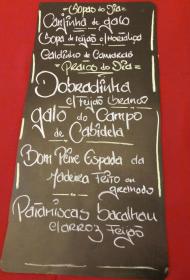 =Sopas do Dia=
Canjinha de galo
Sopa de Feijão c/Hortaliça
Caldinho de Camarão
=Pratos do Dia=
Dobradinha
c/Feijão branco
galo do Campo
de Cabidela
Bom Peixe Espada da
Madeira Frito ou
grelhado
Pataniscas bacalhau
c/arroz Feijão